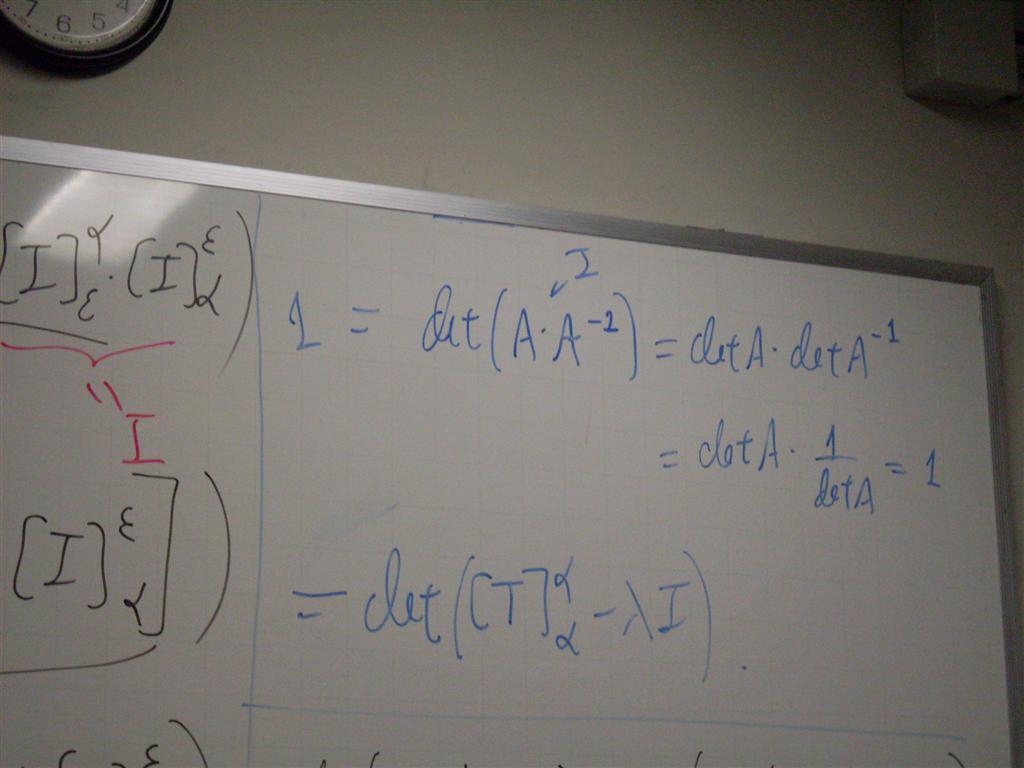 7 6 5 4
[I]_ε^α · [I]_α^ε )
" I
[I]_α^ε ] )
I
1 = det(A·A⁻¹) = detA · detA⁻¹
= detA · 1/detA = 1
= det([T]_α^α - λI).